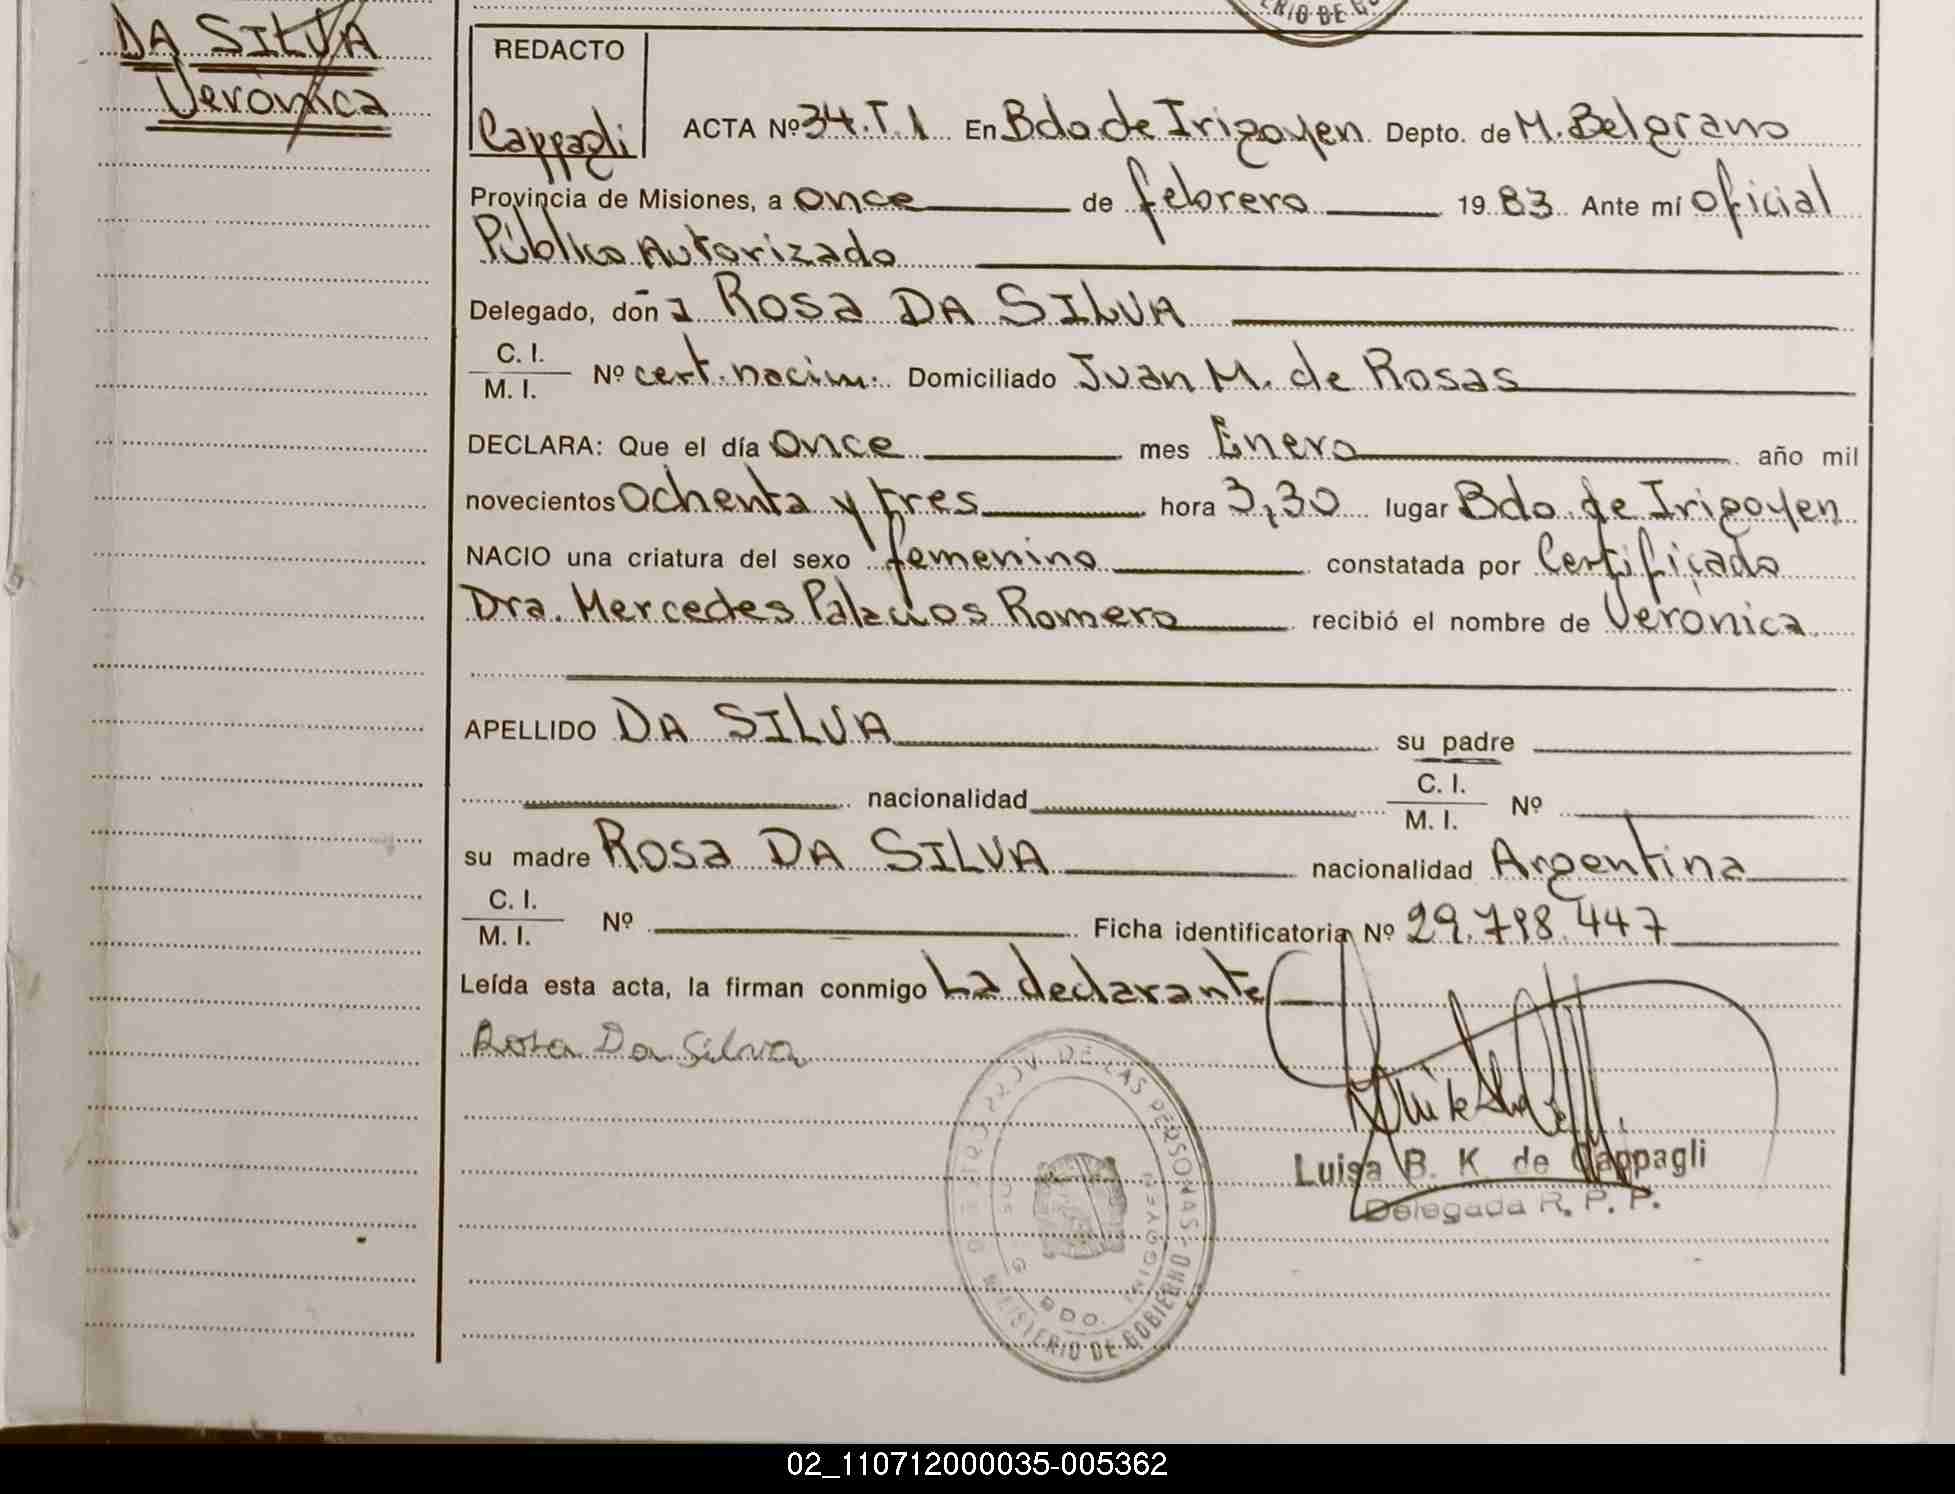 DA SILVA
Verónica
ERIO DE GO
REDACTO
Cappagli
ACTA Nº 34.T.1 En Bdo de Irigoyen Depto. de M. Belgrano
Provincia de Misiones, a once de febrero 19 83 Ante mí oficial
Público Autorizado
Delegado, doña Rosa DA SILVA
C. I.
M. I. Nº cert. nacim. Domiciliado Juan M. de Rosas
DECLARA: Que el día once mes Enero año mil
novecientos ochenta y tres hora 3,30 lugar Bdo. de Irigoyen
NACIO una criatura del sexo femenino constatada por Certificado
Dra. Mercedes Palacios Romero recibió el nombre de Verónica
APELLIDO DA SILVA su padre
nacionalidad C. I.
M. I. Nº
su madre Rosa DA SILVA nacionalidad Argentina
C. I.
M. I. Nº Ficha identificatoria Nº 29.798.447
Leída esta acta, la firman conmigo La declarante
Rosa Da Silva
PROV. DE LAS PERSONAS
MINISTERIO DE GOBIERNO
BDO. IRIGOYEN
Luisa B. K de Cappagli
Delegada R. P. P.
02_110712000035-005362